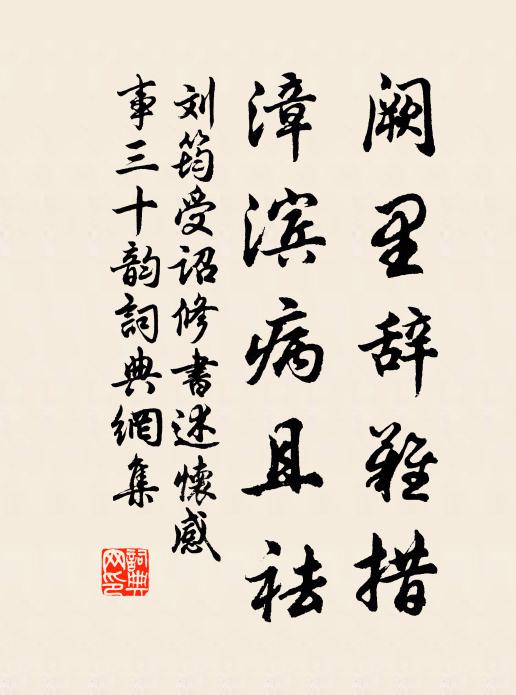 阙里辞难措
漳滨病且祛
刘筠受诏修书述懷感
事三十韵詞典網集
詞典
网印